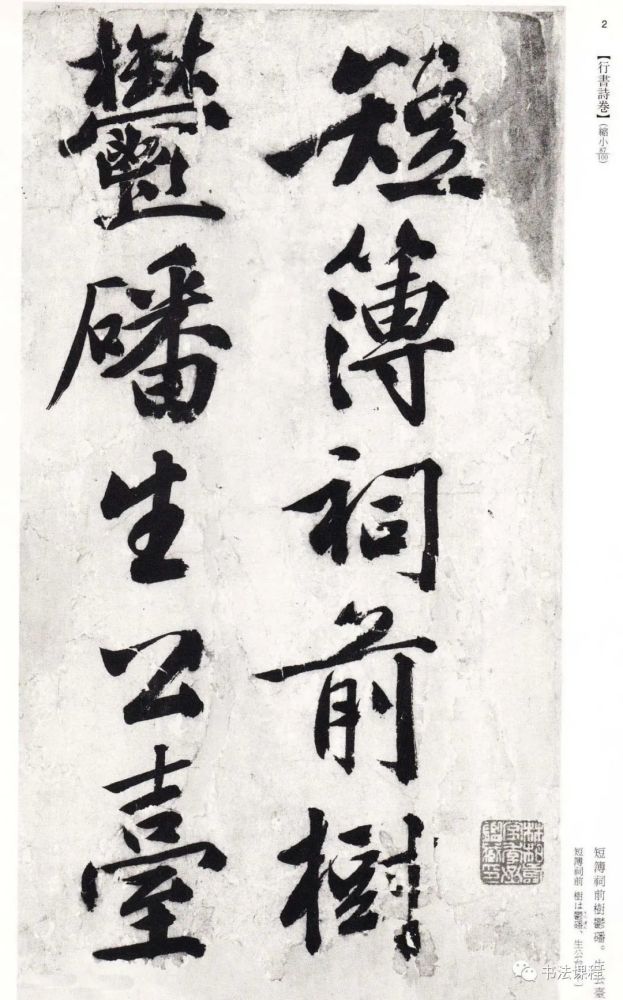 2
【行書詩巻】（縮小87/100）
短簿祠前樹
鬱磻生公臺
短簿祠前樹鬱磻。生公臺
短簿祠前 樹は鬱磻、生公台
书法课程